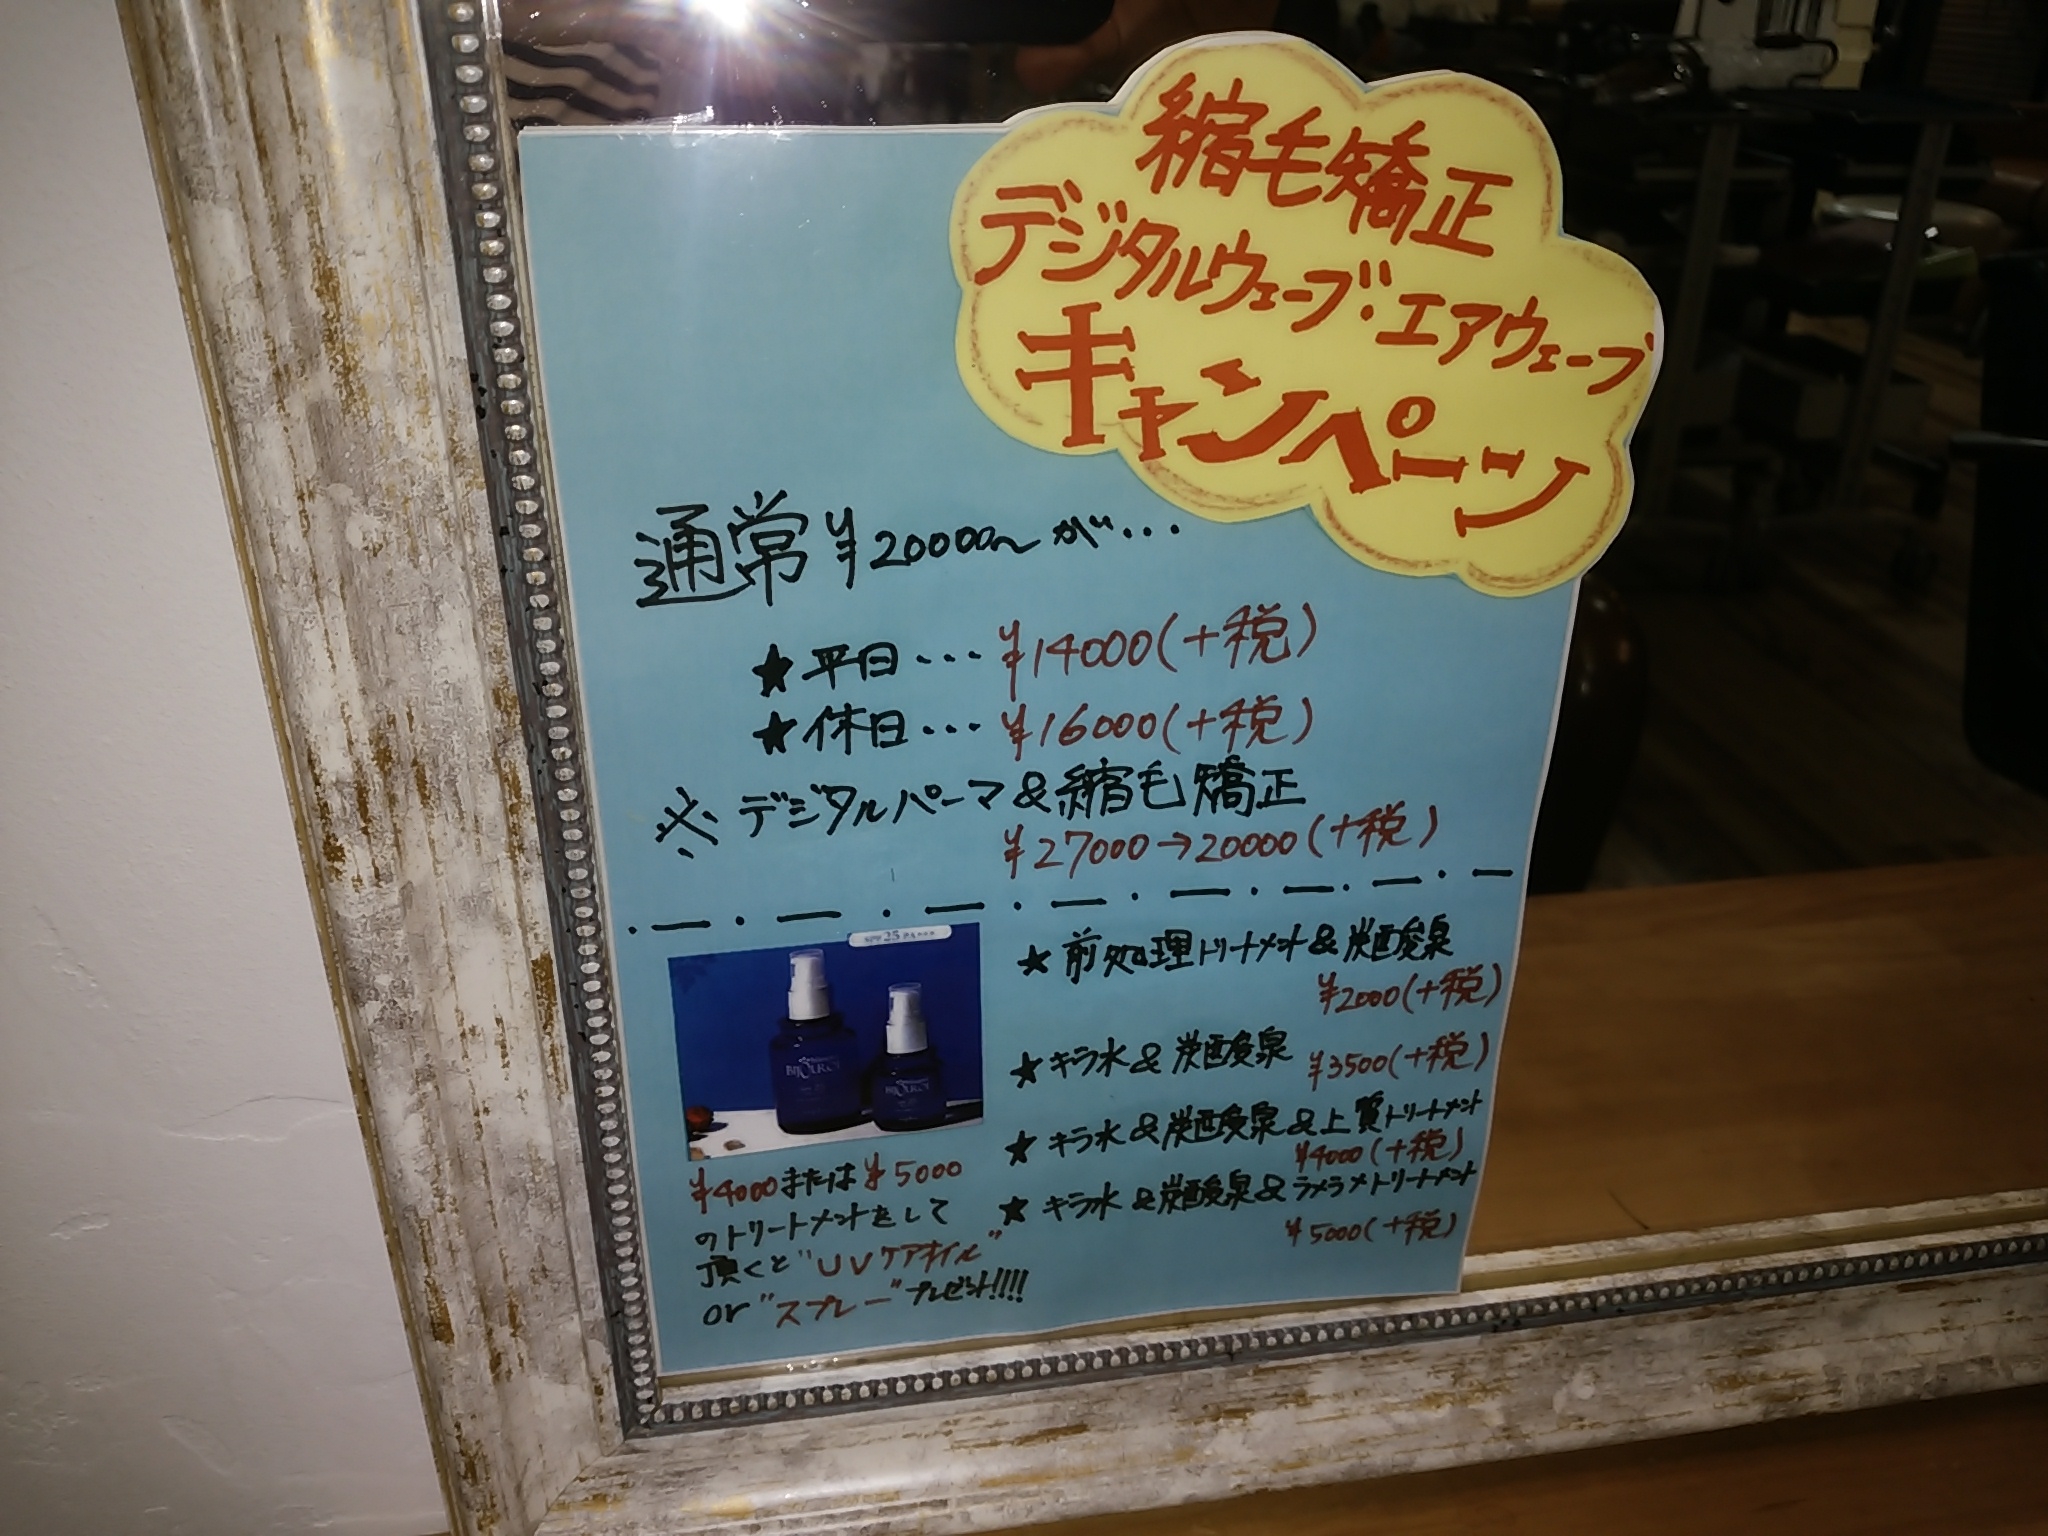 縮毛矯正
デジタルウェーブ・エアウェーブ
キャンペーン
通常¥20000〜が…
★平日…¥14000(+税)
★休日…¥16000(+税)
※デジタルパーマ&縮毛矯正
¥27000→20000(+税)
★前処理トリートメント&炭酸泉
¥2000(+税)
★キラ水&炭酸泉 ¥3500(+税)
★キラ水&炭酸泉&上質トリートメント
¥4000(+税)
★キラ水&炭酸泉&ラメラメトリートメント
¥5000(+税)
SPF 25 PA+++
¥4000または¥5000
のトリートメントをして
頂くと"UVケアオイル"
or"スプレー"プレゼント!!!!